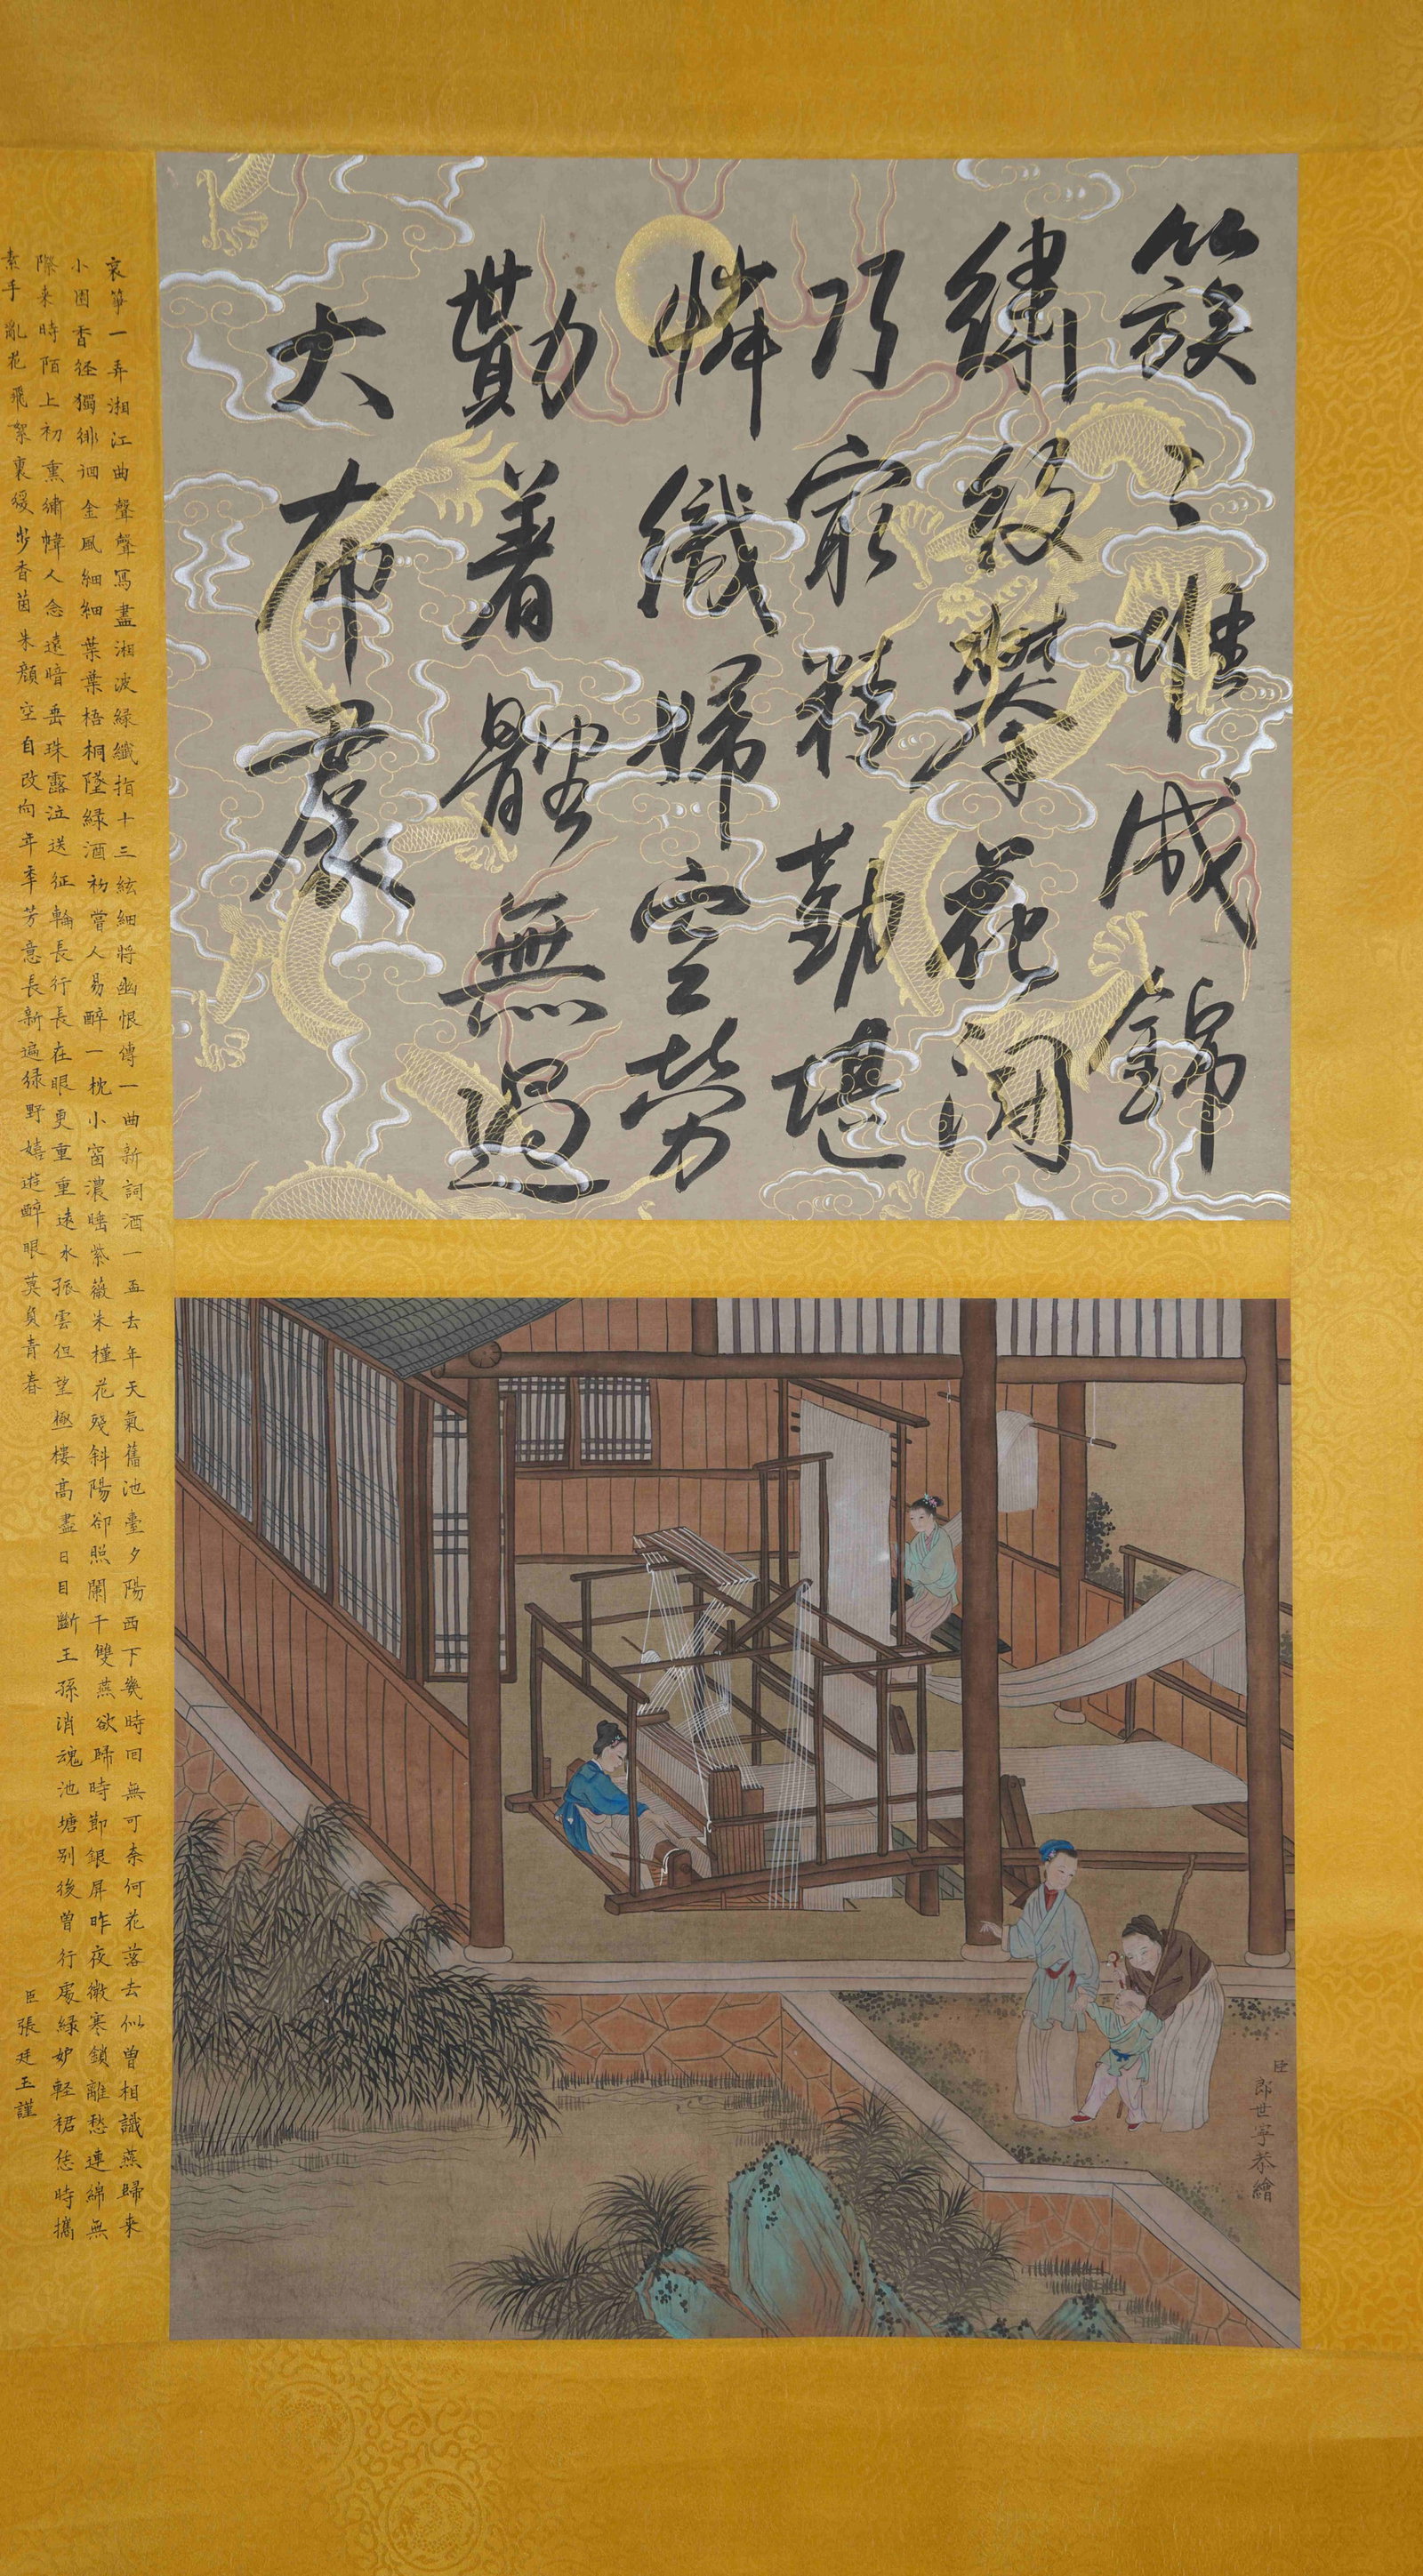 簇〻堆成錦
繡紋攀花閙
乃最精勤堪
憐織婦空勞
勩着體無過
大布裠
臣郎世寧恭繪
哀筝一弄湘江曲聲聲寫盡湘波緑纖指十三絃細將幽恨傳一曲新詞酒一盃去年天氣舊池臺夕陽西下幾時回無可奈何花落去似曾相識燕歸来
小園香径獨徘徊金風細細葉葉梧桐墜緑酒初嘗人易醉一枕小窗濃睡紫薇朱槿花殘斜陽卻照闌干雙燕欲歸時節銀屏昨夜微寒鎖離愁連綿無
際来時陌上初熏繡幃人念遠暗垂珠露泣送征輪長行長在眼更重重遠水孤雲但望極樓高盡日目斷王孫消魂池塘别後曾行處緑妒軽裙恁時攜
素手亂花飛絮裏緩步香茵朱顏空自改向年年芳意長新遍緑野嬉遊醉眼莫負青春
臣張廷玉謹